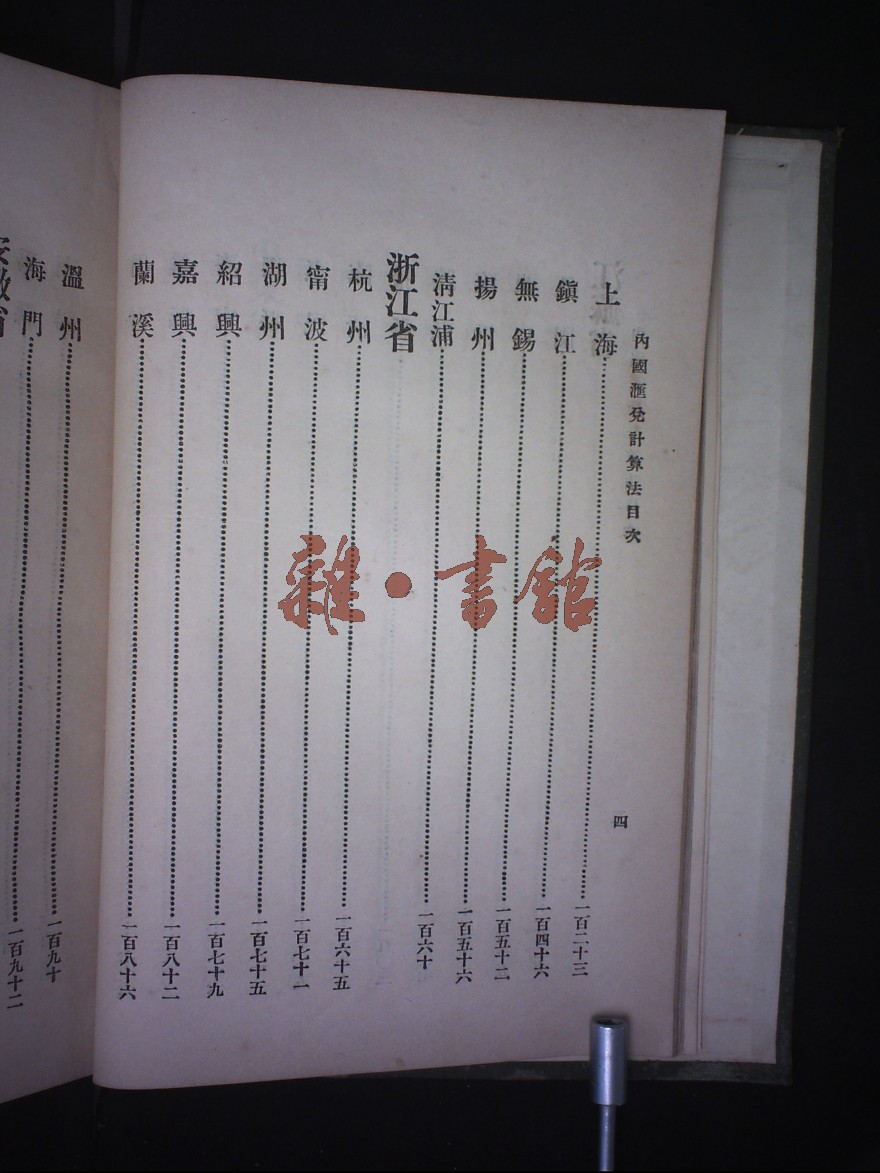 內國滙兌計算法目次 四
上海 一百二十三
鎭江 一百四十六
無錫 一百五十二
揚州 一百五十六
淸江浦 一百六十
浙江省
杭州 一百六十五
甯波 一百七十一
湖州 一百七十五
紹興 一百七十九
嘉興 一百八十二
蘭溪 一百八十六
溫州 一百九十
海門 一百九十二
安徽省
雜·書館